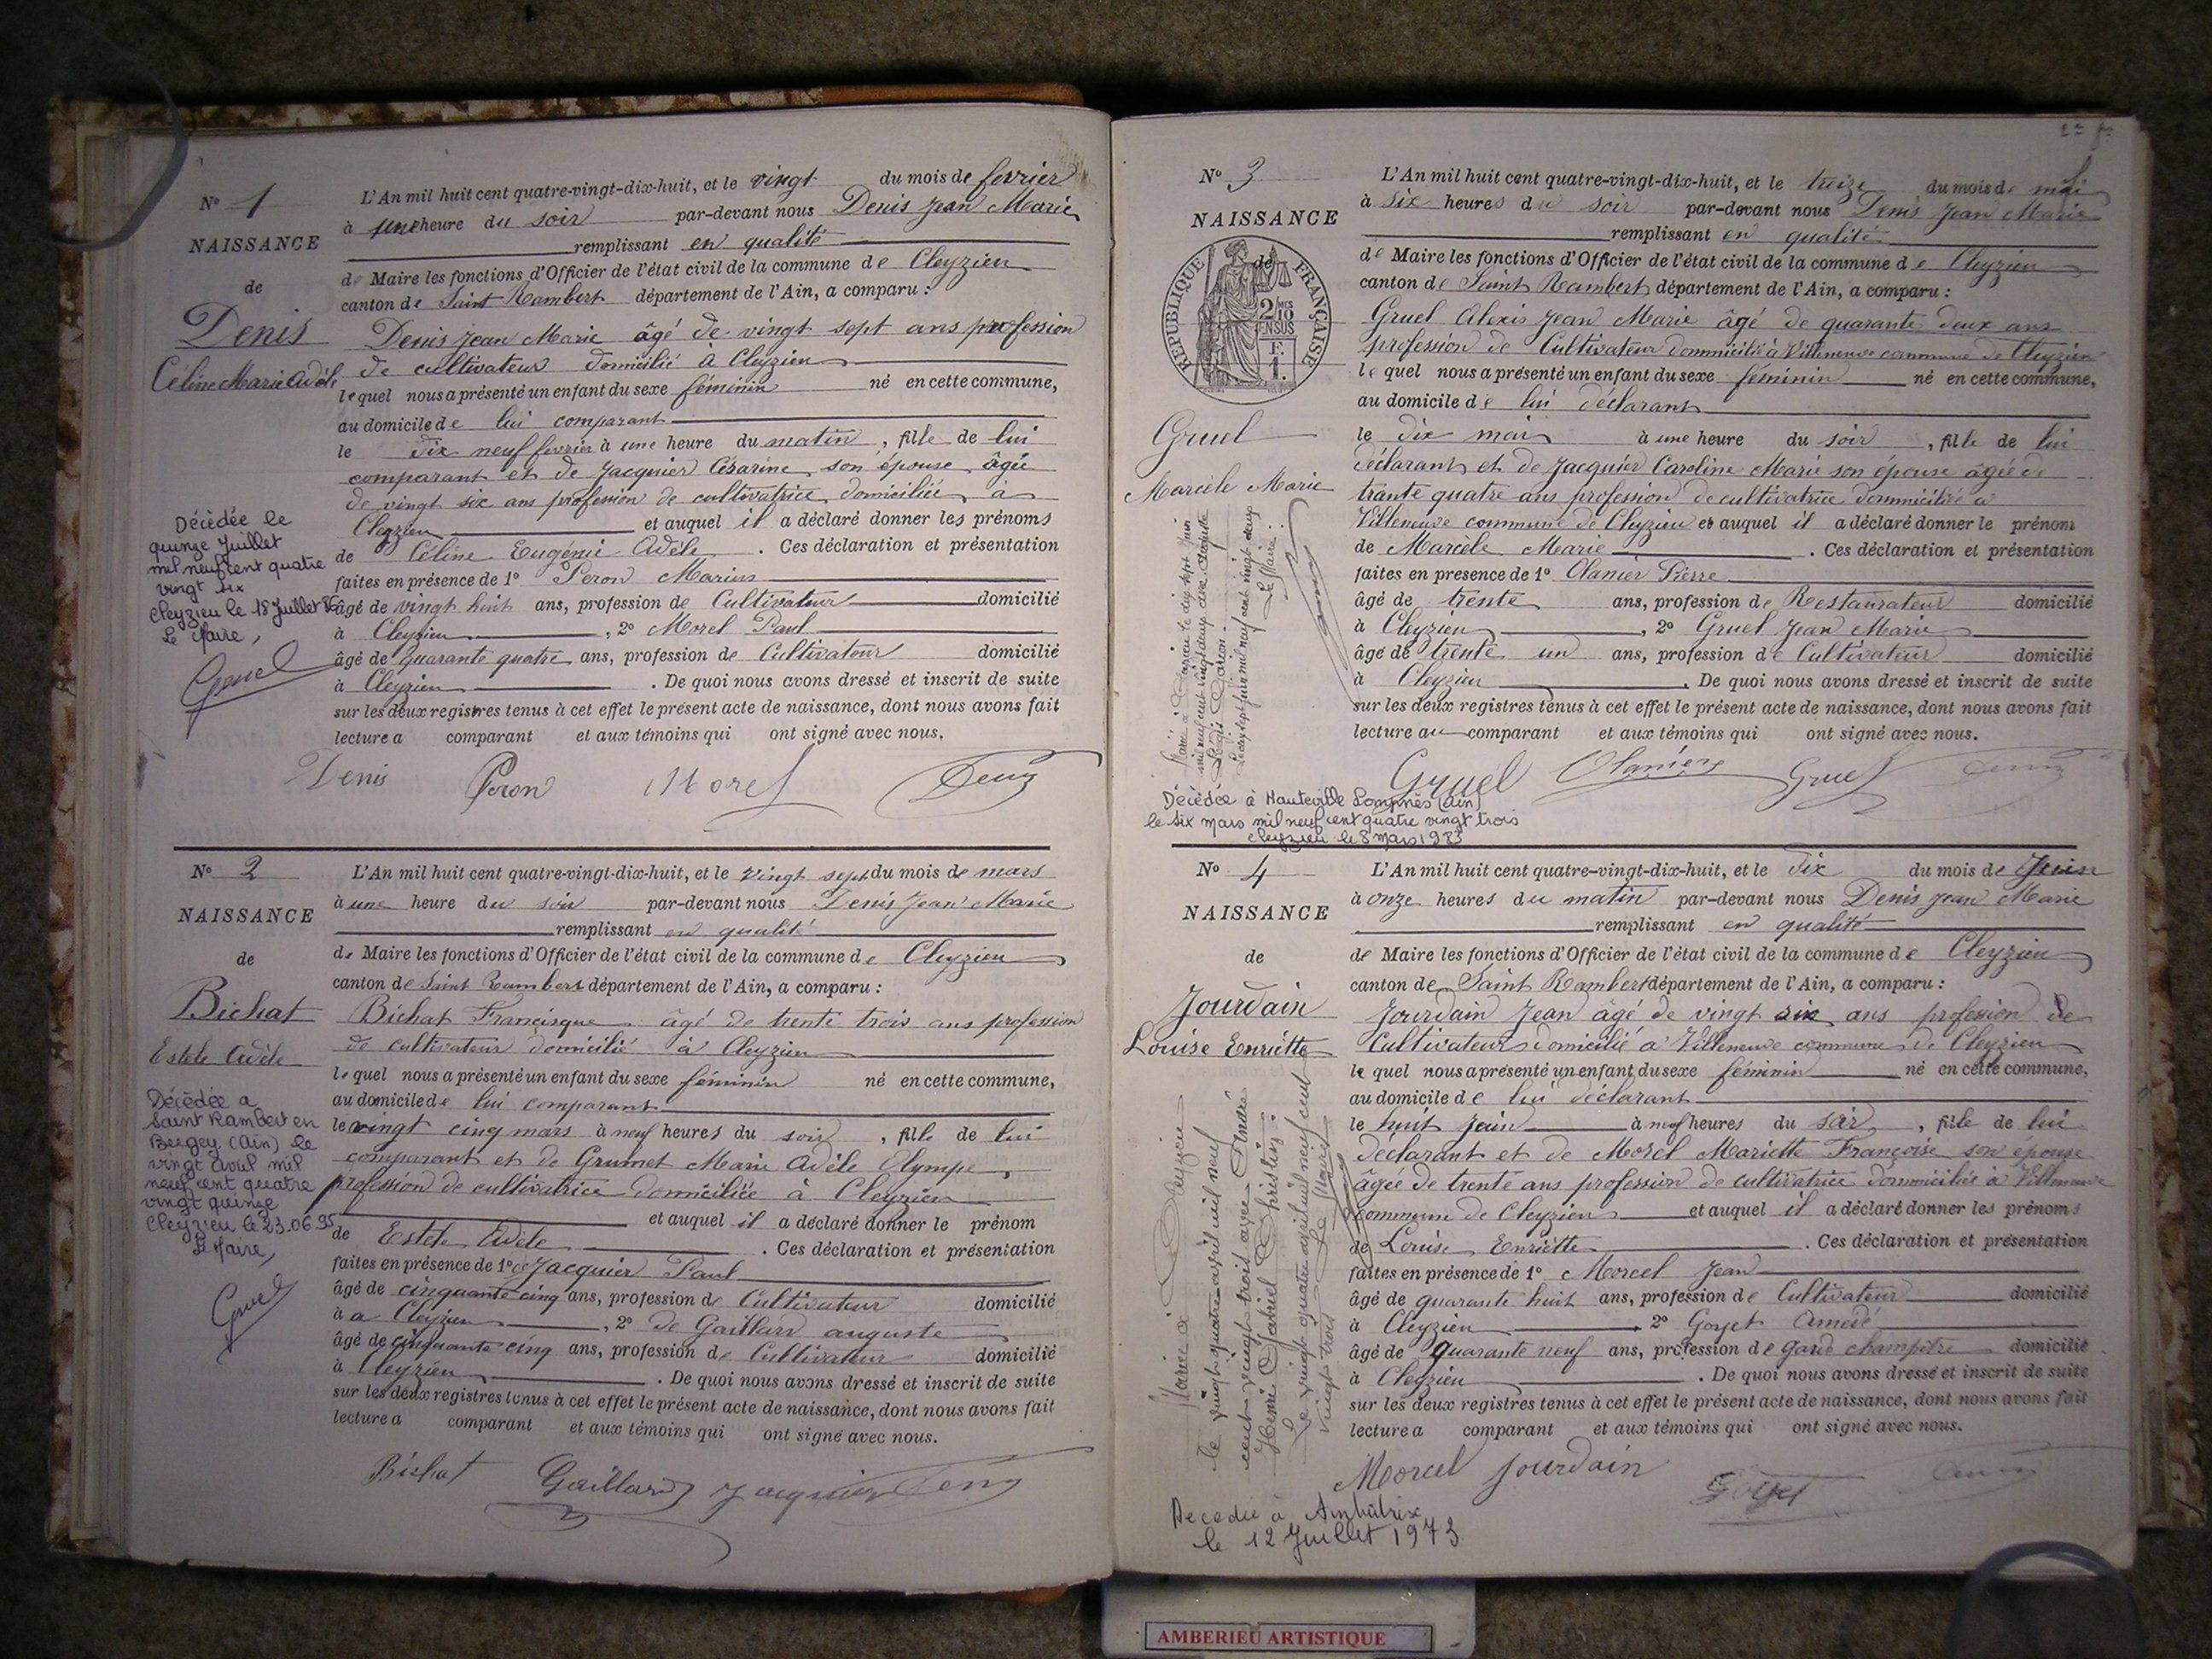 N° 1
NAISSANCE
de
Denis
Céline Marie Adèle
Décédée le
quinze Juillet
mil neuf cent quatre
vingt six
Cleyzieu le 18 Juillet 86
Le Maire,
Gruel
L'An mil huit cent quatre-vingt-dix-huit, et le vingt du mois de fevrier
à une heure du soir par-devant nous Denis Jean Marie
remplissant en qualité
de Maire les fonctions d'Officier de l'état civil de la commune de Cleyzieu
canton de Saint Rambert département de l'Ain, a comparu :
Denis Jean Marie âgé de vingt sept ans profession
de cultivateur domicilié à Cleyzieu
lequel nous a présenté un enfant du sexe féminin né en cette commune,
au domicile de lui comparant
le dix neuf fevrier à une heure du matin, fille de lui
comparant et de Jacquier Césarine son épouse âgée
de vingt six ans profession de cultivatrice domiciliée à
Cleyzieu et auquel il a déclaré donner les prénoms
de Céline Eugénie Adèle . Ces déclaration et présentation
faites en présence de 1° Peron Marius
âgé de vingt huit ans, profession de Cultivateur domicilié
à Cleyzieu , 2° Morel Paul
âgé de quarante quatre ans, profession de Cultivateur domicilié
à Cleyzieu . De quoi nous avons dressé et inscrit de suite
sur les deux registres tenus à cet effet le présent acte de naissance, dont nous avons fait
lecture a comparant et aux témoins qui ont signé avec nous.
Denis Peron Morel Denis
N° 2
NAISSANCE
de
Bichat
Estele Adèle
Décédée a
Saint Rambert en
Bugey (Ain) le
vingt avril mil
neuf cent quatre
vingt quinze
Cleyzieu le 23.06.95
Le Maire,
Gruel
L'An mil huit cent quatre-vingt-dix-huit, et le vingt sept du mois de mars
à une heure du soir par-devant nous Denis Jean Marie
remplissant en qualité
de Maire les fonctions d'Officier de l'état civil de la commune de Cleyzieu
canton de Saint Rambert département de l'Ain, a comparu :
Bichat Francisque âgé de trente trois ans profession
de cultivateur domicilié à Cleyzieu
lequel nous a présenté un enfant du sexe féminin né en cette commune,
au domicile de lui comparant
le vingt cinq mars à neuf heures du soir, fille de lui
comparant et de Grumet Marie Adèle Olympe,
profession de cultivatrice domiciliée à Cleyzieu
et auquel il a déclaré donner le prénom
de Estele Adèle . Ces déclaration et présentation
faites en présence de 1° Jacquier Paul
âgé de cinquante cinq ans, profession de Cultivateur domicilié
à a Cleyzieu , 2° de Gaillard auguste
âgé de cinquante cinq ans, profession de Cultivateur domicilié
à Cleyzieu . De quoi nous avons dressé et inscrit de suite
sur les deux registres tenus à cet effet le présent acte de naissance, dont nous avons fait
lecture a comparant et aux témoins qui ont signé avec nous.
Bichat Gaillard Jacquier Denis
N° 3
NAISSANCE
de
REPUBLIQUE FRANÇAISE
2/10 MES
EN SUS
F.
1.
Gruel
Marcèle Marie
Marié à Cleyzieu le dix sept Juin
mil neuf cent vingt deux avec Auguste
Louis
Le dix sept Juin mil neuf cent vingt deux
Le Maire :
L'An mil huit cent quatre-vingt-dix-huit, et le treize du mois de mai
à six heures du soir par-devant nous Denis Jean Marie
remplissant en qualité
de Maire les fonctions d'Officier de l'état civil de la commune de Cleyzieu
canton de Saint Rambert département de l'Ain, a comparu :
Gruel Alexis Jean Marie âgé de quarante deux ans
profession de Cultivateur dommicilié à Villeneuve commune de Cleyzieu
lequel nous a présenté un enfant du sexe féminin né en cette commune,
au domicile de lui déclarant
le dix mai à une heure du soir, fille de lui
déclarant et de Jacquier Caroline Marie son épouse âgée de
trante quatre ans profession de cultivatrice dommiciliée a
Villeneuve commune de Cleyzieu et auquel il a déclaré donner le prénom
de Marcèle Marie . Ces déclaration et présentation
faites en presence de 1° Olanier Pierre
âgé de trente ans, profession de Restaurateur domicilié
à Cleyzieu , 2° Gruel Jean Marie
âgé de trente un ans, profession de Cultivateur domicilié
à Cleyzieu . De quoi nous avons dressé et inscrit de suite
sur les deux registres tenus à cet effet le présent acte de naissance, dont nous avons fait
lecture au comparant et aux témoins qui ont signé avec nous.
Gruel Olanier Gruel Denis
Décédée à Hauteville Lompnès (Ain)
le six mars mil neuf cent quatre vingt trois
Cleyzieu le 8 mars 1983
N° 4
NAISSANCE
de
Jourdain
Louise Enriette
Marié à Cleyzieu
le vingt quatre avril mil neuf
cent vingt trois avec André
Henri Gabriel Christin :
Le vingt quatre avril mil neuf cent
vingt trois Le Maire
L'An mil huit cent quatre-vingt-dix-huit, et le dix du mois de Juin
à onze heures du matin par-devant nous Denis Jean Marie
remplissant en qualité
de Maire les fonctions d'Officier de l'état civil de la commune de Cleyzieu
canton de Saint Rambert département de l'Ain, a comparu :
Jourdain Jean âgé de vingt six ans profession de
Cultivateur domicilié à Villeneuve commune de Cleyzieu
lequel nous a présenté un enfant du sexe féminin né en cette commune,
au domicile de lui déclarant
le huit juin à neuf heures du soir, fille de lui
déclarant et de Morel Mariette Françoise son épouse
âgée de trente ans profession de cultivatrice dommiciliée à Villeneuve
commune de Cleyzieu et auquel il a déclaré donner les prénoms
de Louise Enriette . Ces déclaration et présentation
faites en présence de 1° Morcel Jean
âgé de quarante huit ans, profession de Cultivateur domicilié
à Cleyzieu , 2° Goyet Amedé
âgé de quarante neuf ans, profession de gard champêtre domicilié
à Cleyzieu . De quoi nous avons dressé et inscrit de suite
sur les deux registres tenus à cet effet le présent acte de naissance, dont nous avons fait
lecture a comparant et aux témoins qui ont signé avec nous.
Morcel Jourdain Goyet Denis
Decedée à Ambutrix
le 12 Juillet 1973
AMBERIEU ARTISTIQUE